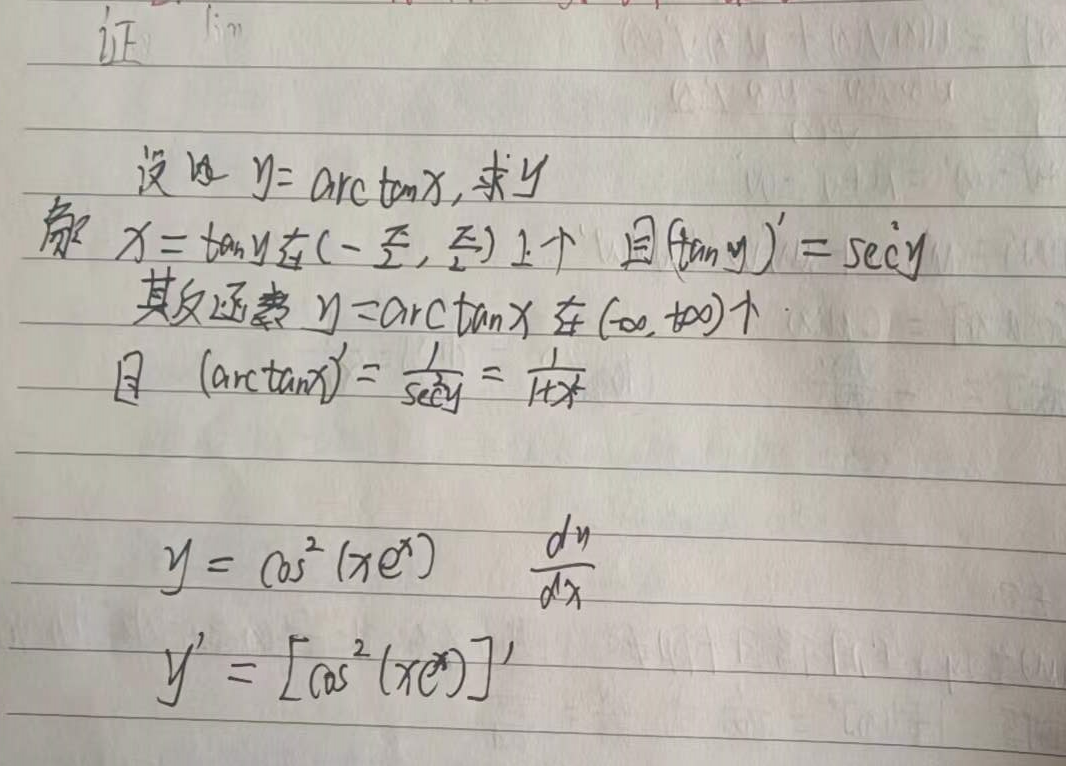 证 lim
设 y = arctanx, 求y
解 x = tany在(-π/2, π/2)上↑ 且(tany)' = sec²y
其反函数 y = arctanx 在(-∞, +∞)↑
且 (arctanx)' = 1/sec²y = 1/1+x²
y = cos²(xeˣ) dy/dx
y' = [cos²(xeˣ)]'